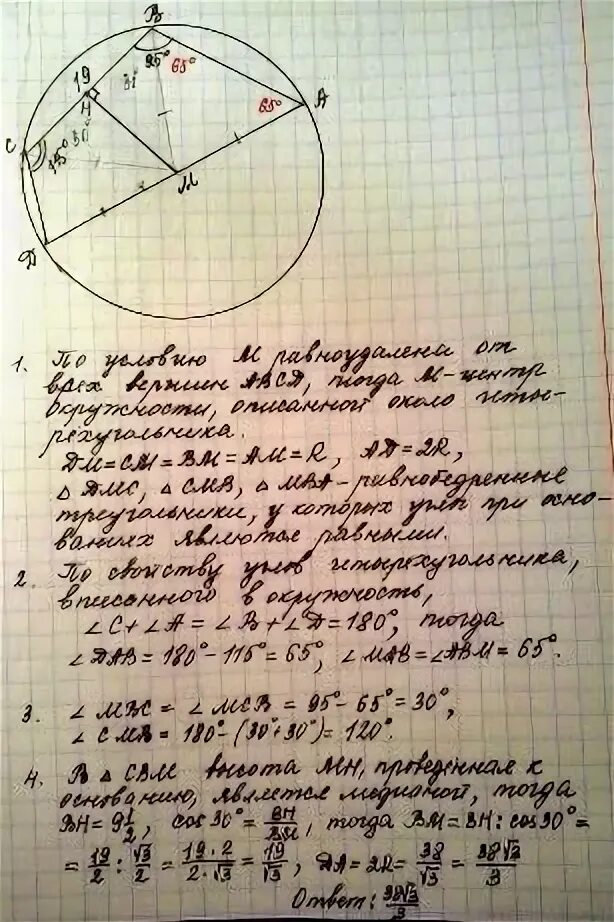 B
95° 65°
19
H
30°
65° A
C
115°
30°
M
D
1. По условию M равноудалена от
всех вершин ABCD, тогда M-центр
окружности, описанной около четы-
рехугольника.
DM=CM=BM=AM=R, AD=2R,
△ DMC, △ CMB, △ MBA-равнобедренные
треугольники, у которых углы при осно-
ваниях являются равными.
2. По свойству углов четырехугольника,
вписанного в окружность,
∠C+∠A=∠B+∠D=180°, тогда
∠DAB=180°-115°=65°, ∠MAB=∠ABM=65°.
3. ∠MBC=∠MCB=95°-65°=30°,
∠CMB=180°-(30°+30°)=120°.
4. В △ CBM высота MH, проведенная к
основанию, является медианой, тогда
BH=9 1/2, cos30°=BH/BM, тогда BM=BH:cos30°=
=19/2:√3/2=19·2/2·√3=19/√3, DA=2R=38/√3=38√3/3
Ответ: 38√3/3